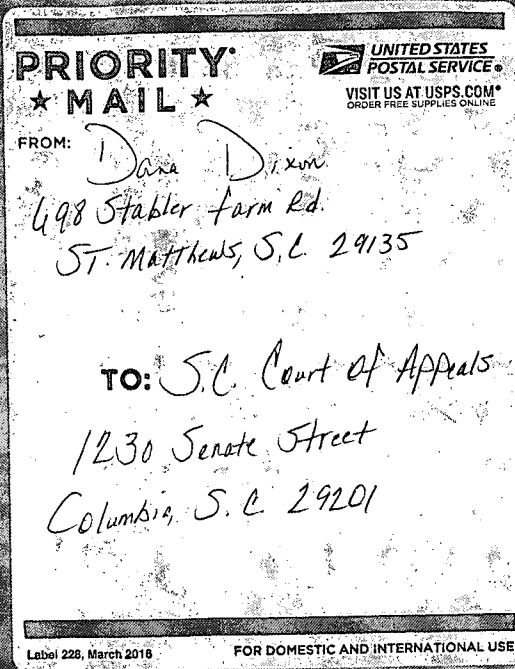 PRIORITY®
★ MAIL ★
UNITED STATES
POSTAL SERVICE®
VISIT US AT USPS.COM®
ORDER FREE SUPPLIES ONLINE
FROM: Dana Dixon
698 Stabler farm Rd.
ST. Matthews, S.C. 29135
TO: S.C. Court of Appeals
1230 Senate Street
Columbia, S.C. 29201
Label 228, March 2016
FOR DOMESTIC AND INTERNATIONAL USE